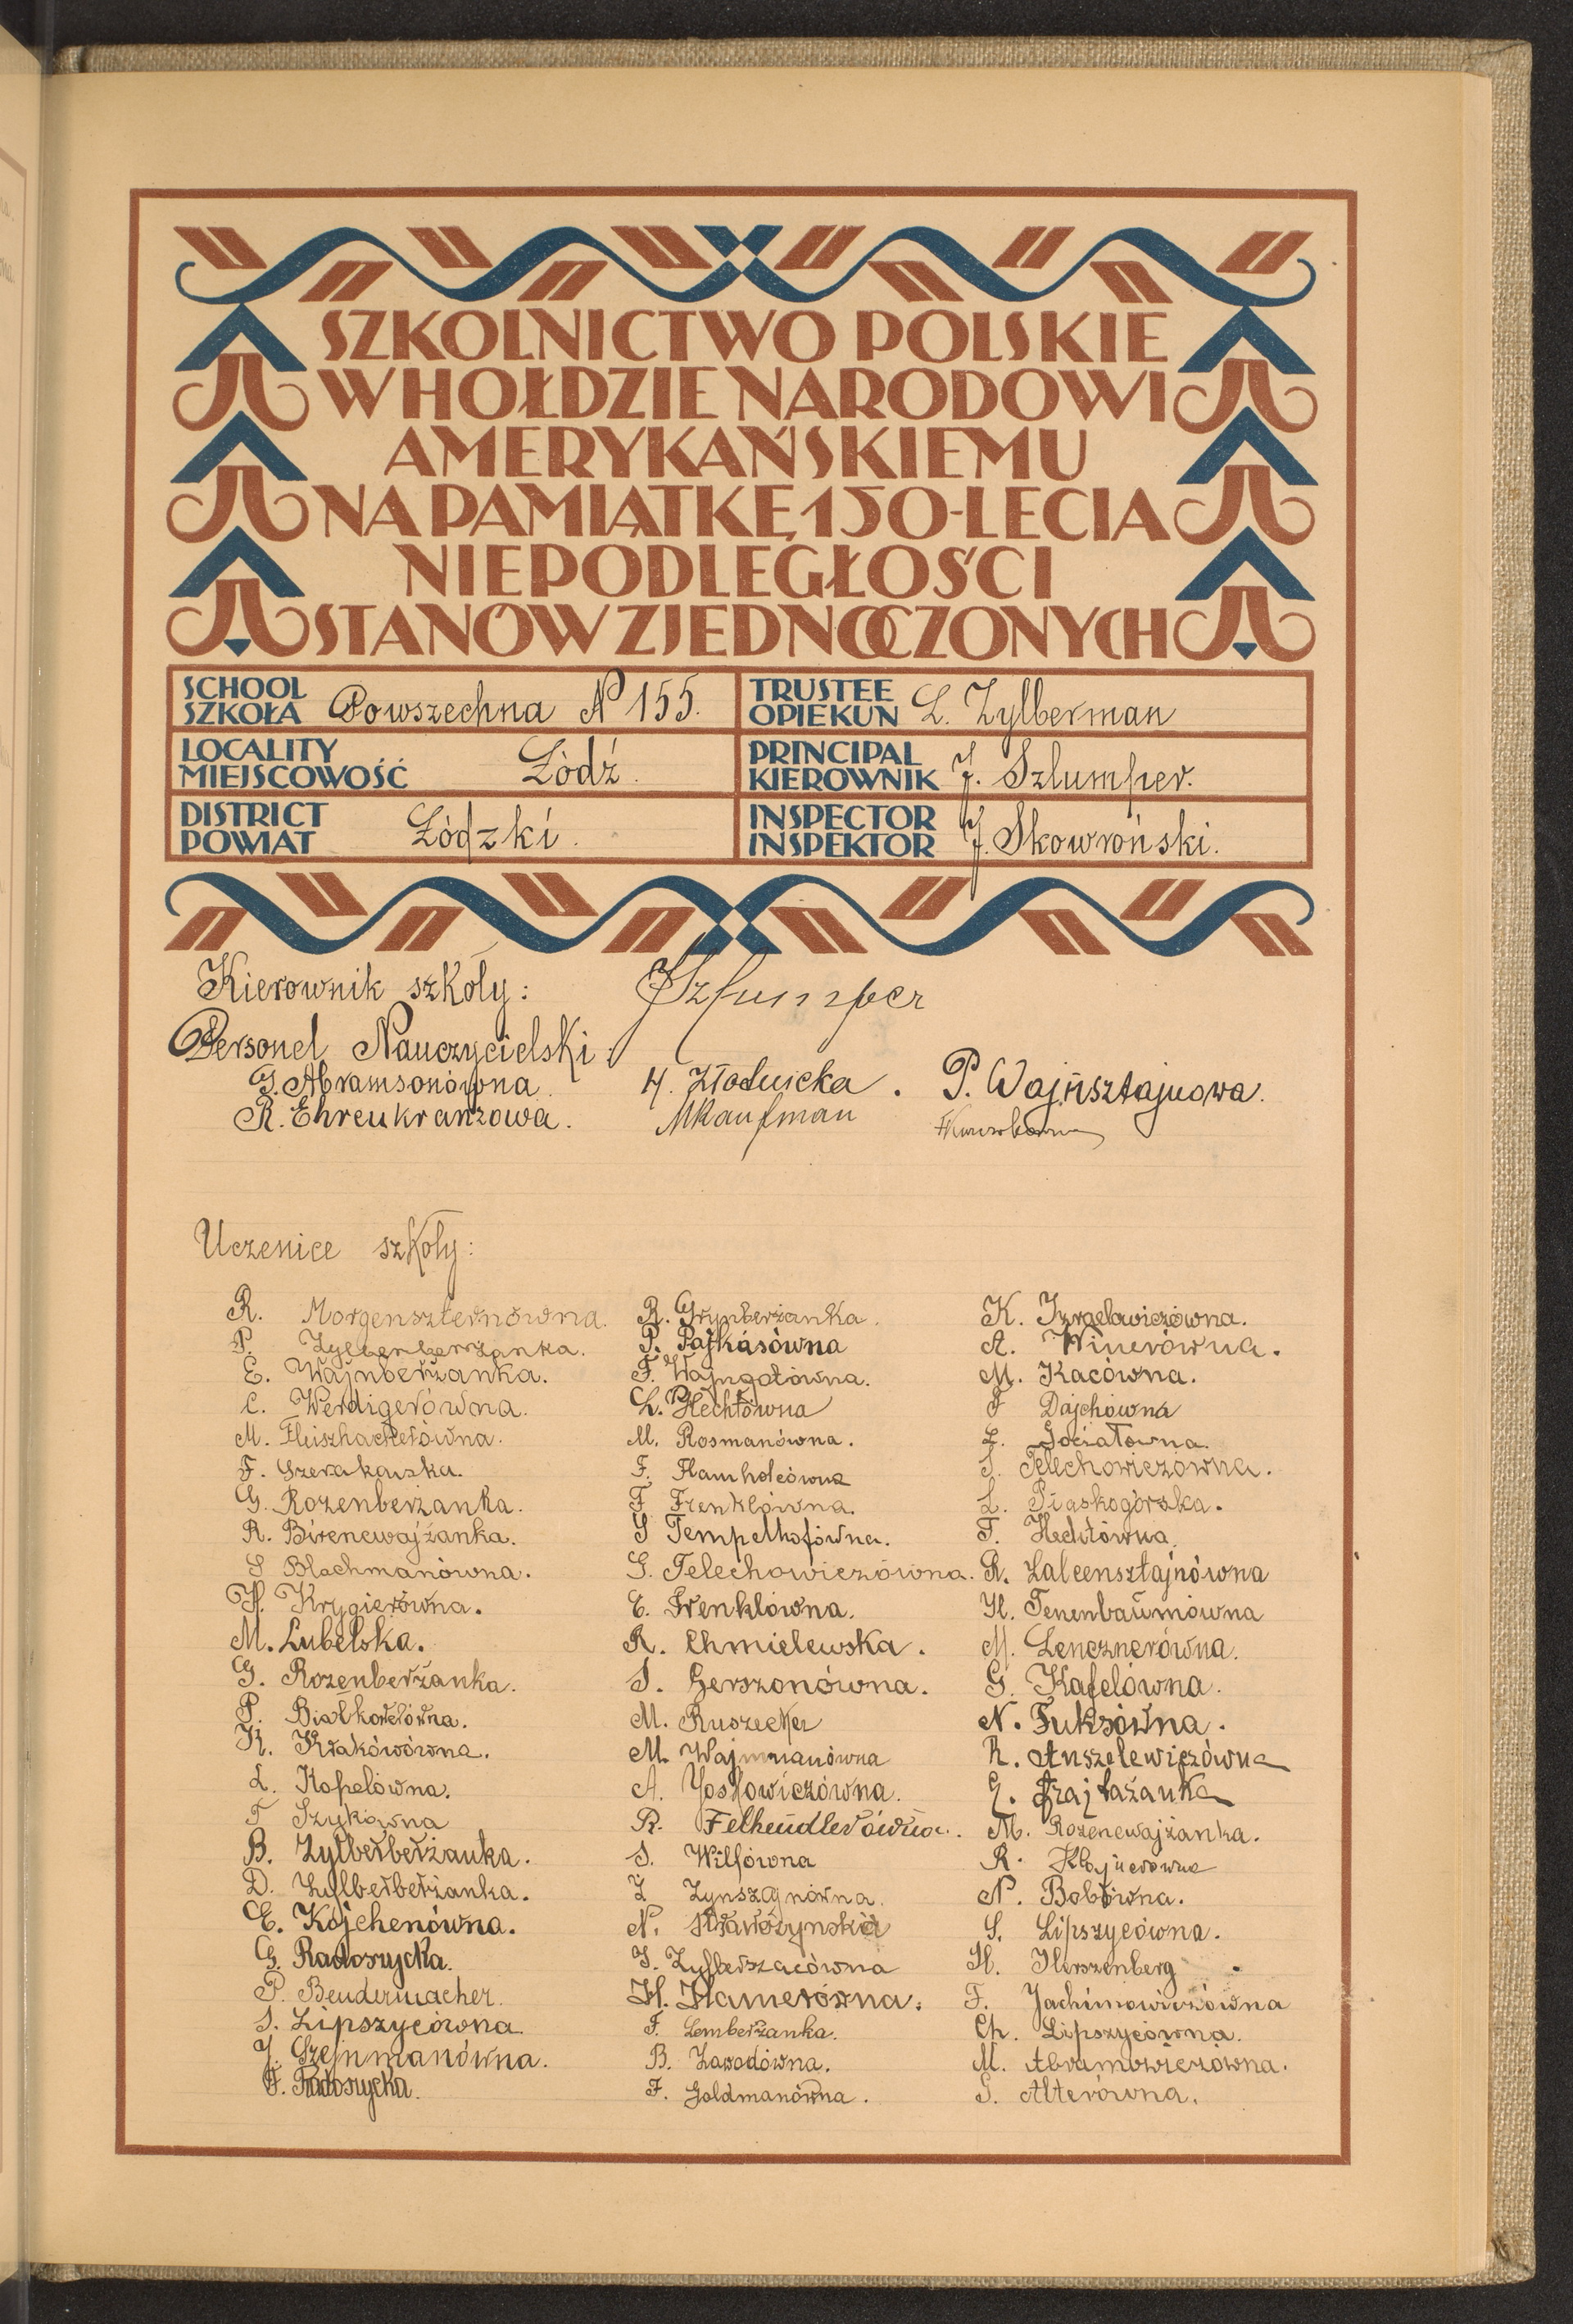 SZKOLNICTWO POLSKIE
W HOŁDZIE NARODOWI
AMERYKAŃSKIEMU
NA PAMIĄTKĘ 150-LECIA
NIEPODLEGŁOŚCI
STANÓW ZJEDNOCZONYCH
SCHOOL
SZKOŁA Powszechna N 155.
TRUSTEE
OPIEKUN L. Zylberman
LOCALITY
MIEJSCOWOŚĆ Łódź.
PRINCIPAL
KIEROWNIK J. Szlumper.
DISTRICT
POWIAT Łódzki.
INSPECTOR
INSPEKTOR J. Skowroński.
Kierownik szkoły: JSzlumper
Personel Nauczycielski:
G. Abramsonówna. H. Złotnicka. P. Wajnsztajnowa.
R. Ehrenkranzowa. MKaufman
Uczenice szkoły:
R. Morgenszternówna.
P. Zylberberżanka.
E. Wajnberżanka.
C. Werdigerówna.
M. Fliszhackerówna.
F. Szerakowska.
G. Rozenberżanka.
R. Birencwajżanka.
S Blachmanówna.
H. Krygierówna.
M. Lubelska.
G. Rozenberżanka.
P. Białkowerówna.
K. Krakówówna.
L. Kopelówna.
T Szykówna
B. Zylberberżanka.
D. Zylberberżanka.
E. Kojchenówna.
G. Radoszycka.
P. Bendermacher.
S. Lipszycówna.
J. Szejnmanówna.
F. Radoszycka.
R. Grynberżanka.
P. Pajkásówna
F. Wajngotówna.
L. Hechtówna
M. Rosmanówna.
F. Flamholcówna
F Frenklówna.
S Tempelhofówna.
S. Telechowiczówna.
E. Frenklówna.
R. Chmielewska.
S. Gerszonówna.
M. Ruszecka
M. Wajnmanówna
A. Joskowiczówna.
R. Felhendlerówna.
S. Wilfówna
Z Zynszajnówna.
N. Wawrzynska
S. Zylberszacówna
H. Hamerówna.
F. Lemberżanka.
B. Zawodówna.
F. Goldmanówna.
K. Izraelewiczówna.
A. Winerówna.
M. Kacówna.
J Dajchówna
L. Sociałowna.
S. Telechowiczówna.
L. Piaskogórska.
F. Hechtówna.
R. Zalcensztajnówna
H. Tenenbaumówna
M. Lencznerówna.
G. Kafelówna.
N. Fuksówna.
R. Anszelewiczówna
G. Frajtażanka
M. Rozencwajżanka.
R. Klajnerówna
N. Bobrówna.
S. Lipszycówna.
H. Herszenberg.
F. Jachimowiczówna
Ch. Lipszycówna.
M. Abramowiczówna.
S. Alterówna.